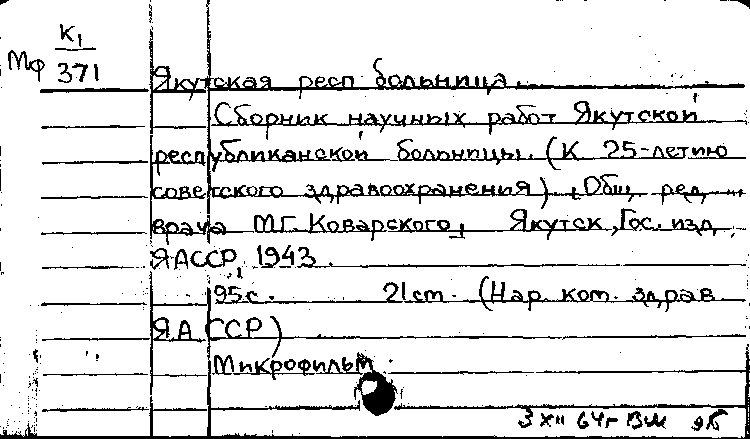 К1
Мф 371
Якутская респ больница.
Сборник научных работ Якутской
республиканской больницы. (К 25-летию
советского здравоохранения). Общ. ред.
врача М.Г. Коварского, Якутск, Гос. изд.
ЯАССР, 1943.
95с. 21см. (Нар. ком. здрав
ЯАССР)
Микрофильм.
3 XII 64г